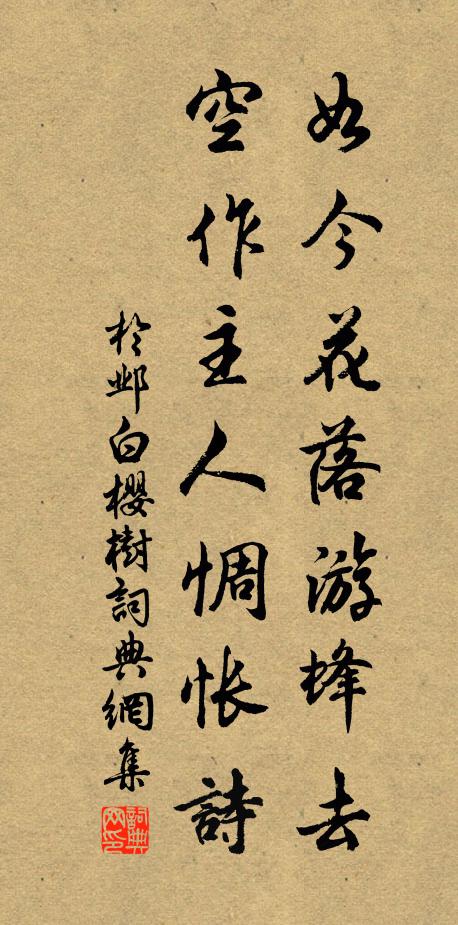 如今花落游蜂去
空作主人惆怅詩
於邺白櫻樹詞典網集
詞典網印